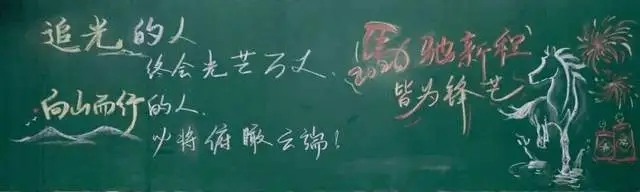 追光的人
终会光芒万丈.
向山而行的人.
必将俯瞰云端!
馬驰新积
2026
皆为锋芒